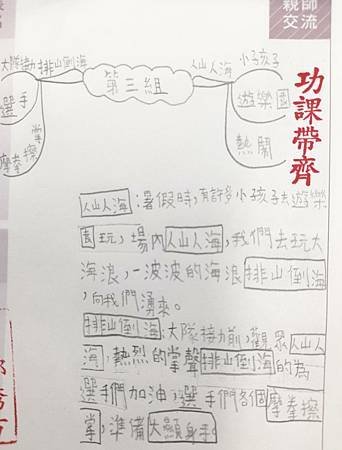 親師
交流
功課帶齊
第三組
大隊
排山倒海
選手
摩拳擦
掌
人山人海
小孩子
遊樂園
熱鬧
人山人海:暑假時,有許多小孩子去遊樂
園玩,場內人山人海,我們去玩大
海浪,一波波的海浪排山倒海
,向我們湧來。
排山倒海:大隊接力前,觀眾人山人
海,熱烈的掌聲排山倒海的為
選手們加油,選手們各個摩拳擦
掌,準備大顯身手。